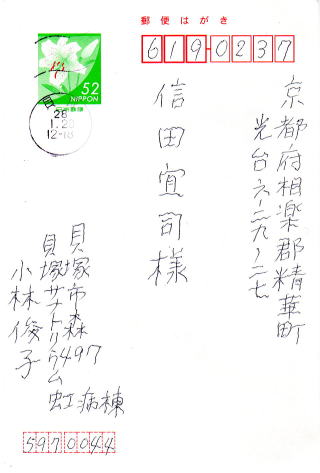 郵便はがき
619-0237
52
NIPPON
日本郵便
28
1.28
12-18
京都府相楽郡精華町
光台六ー二九ー二七
信田宜司様
貝塚市森497
貝塚サナトリウム虹病棟
小林俊子
5970044